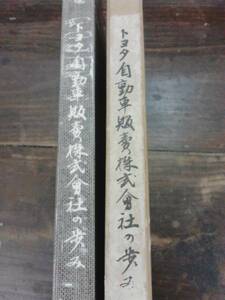 トヨタ自動車販賣株式會社の歩み
トヨタ自動車販賣株式會社の歩み